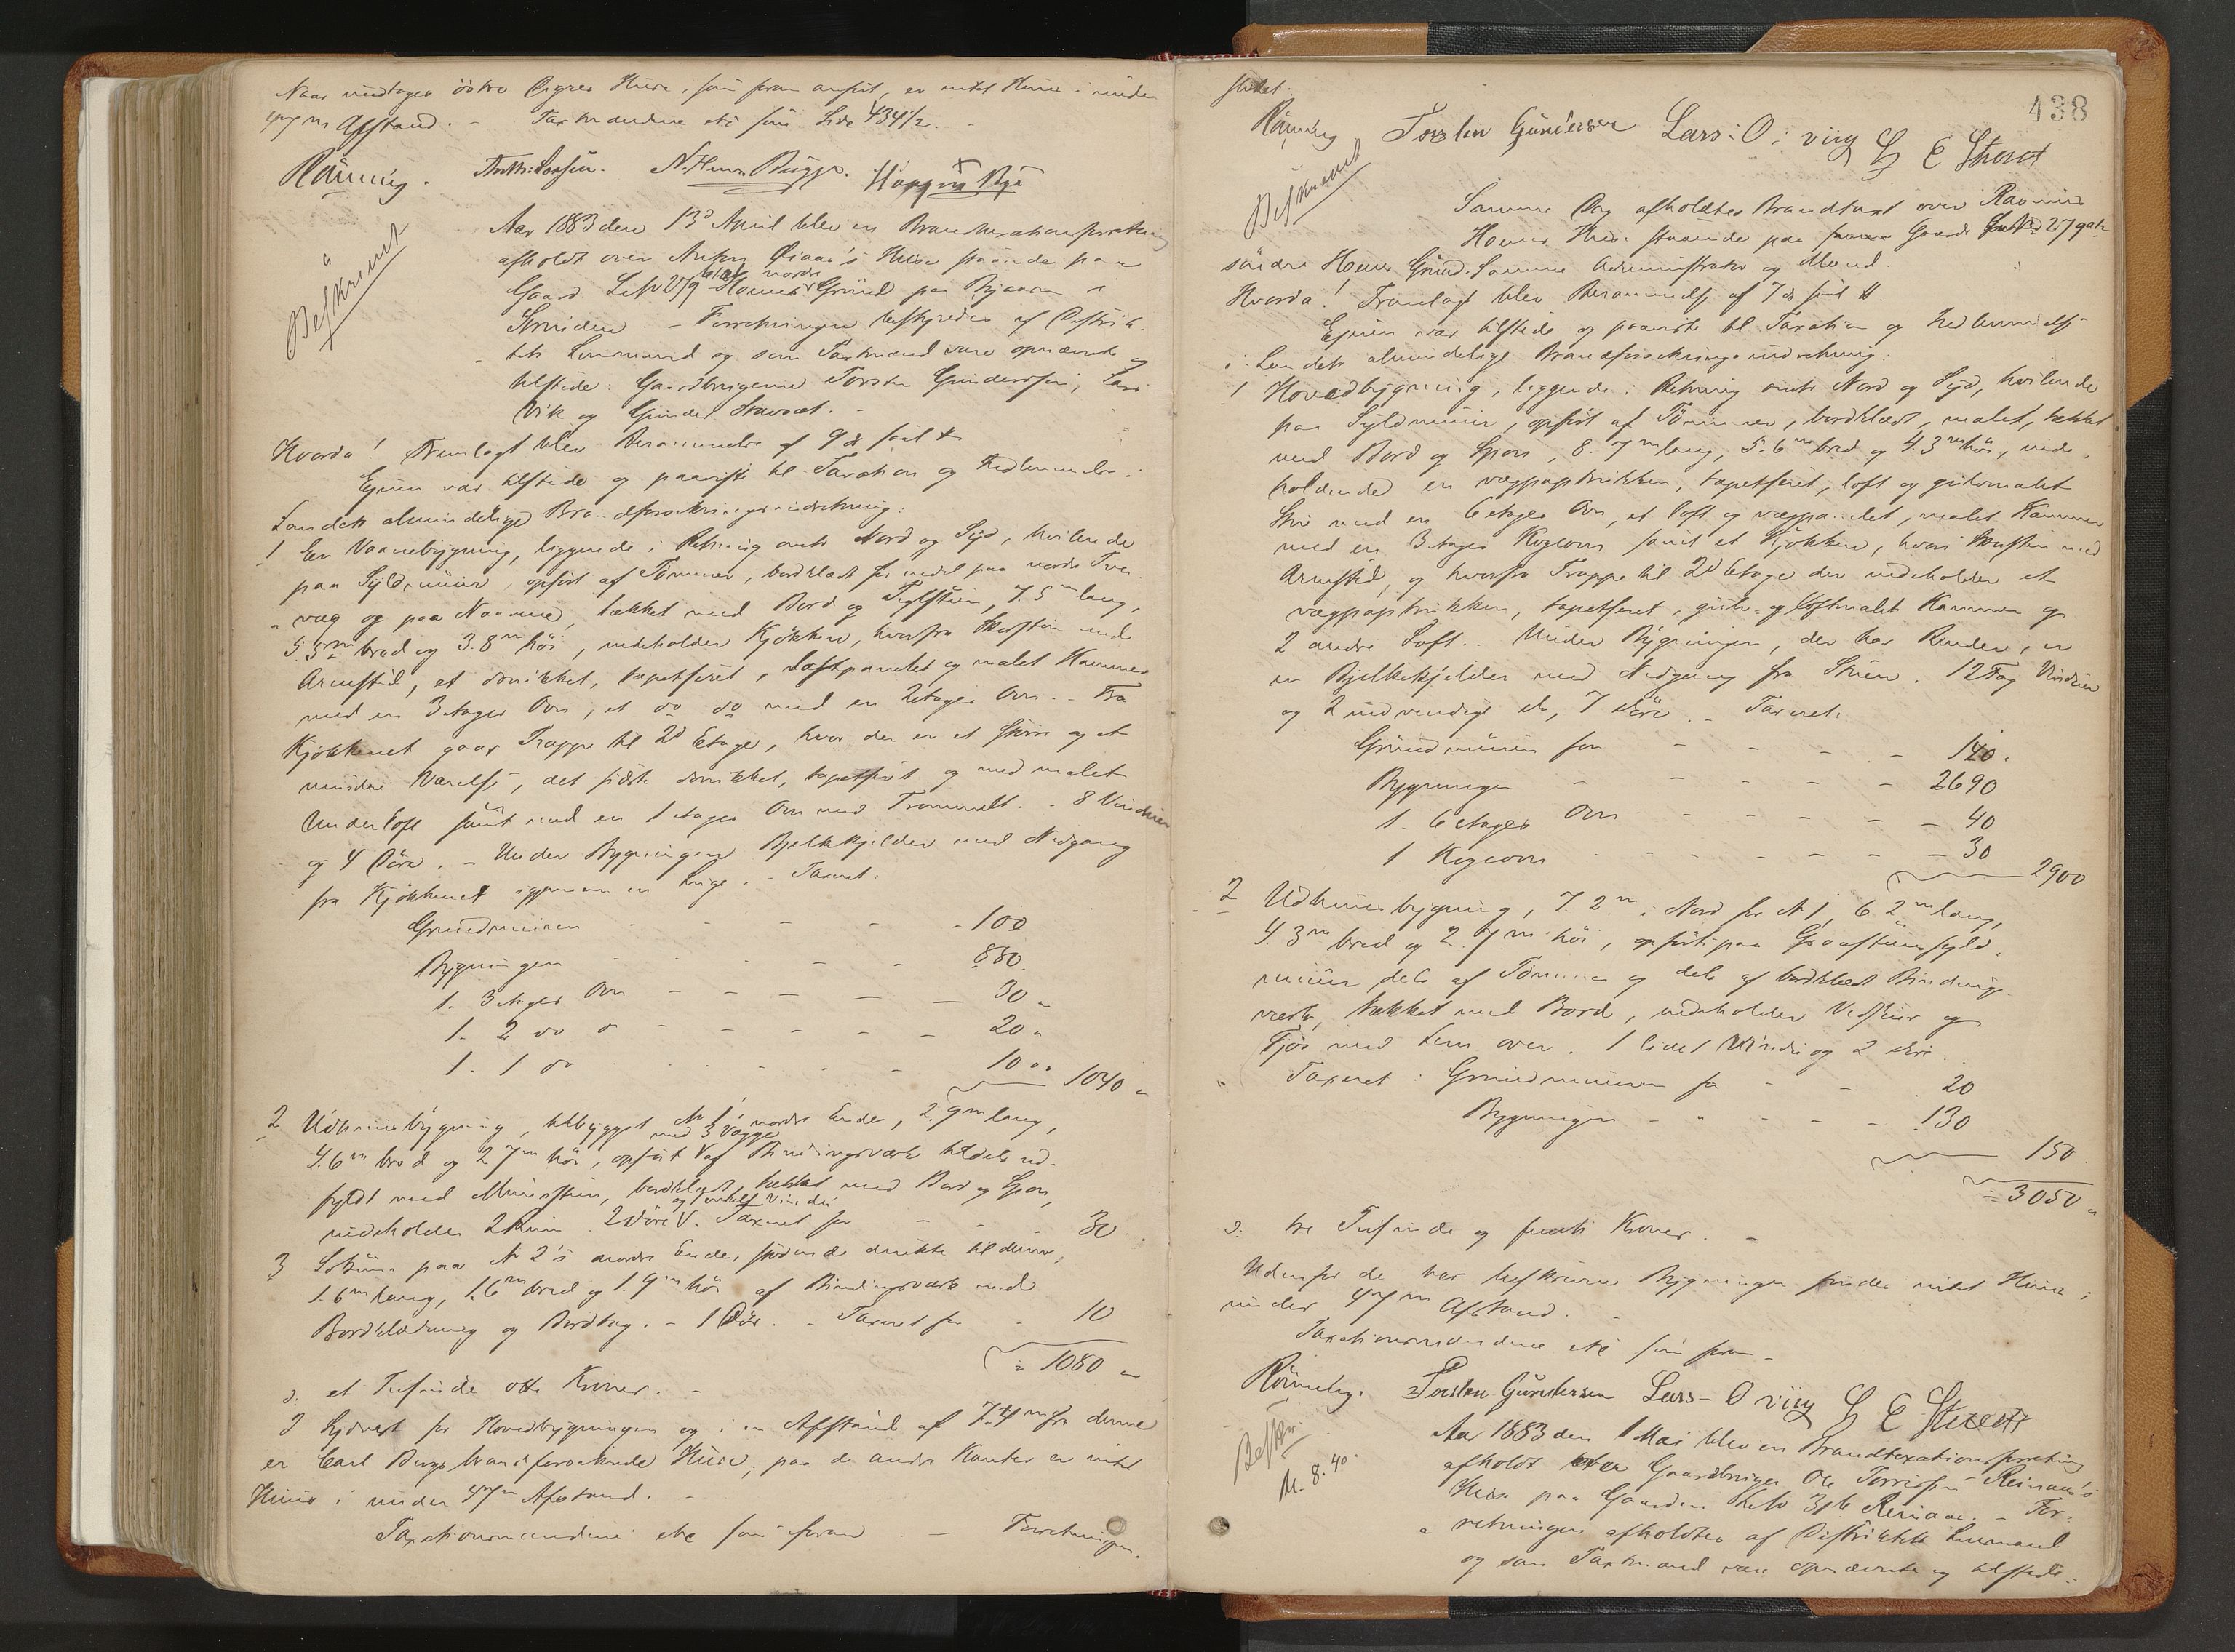 Naar undtages östre Eigers Huse, som foran anfört, er intet Huus i under
470 m Afstand. - Taxtmændene etc som Side 434 1/2. -
Rönning. N. Hans. Bugge.
Beskrevet
Aar 1883 den 13d April blev en Brandtaxationsforretning
afholdt over Huse staaende paa
Gaard nordre Homes Grund paa Byaasen i
Forretningen bestyredes af Distrik-
tets Lensmand og som Taxtmænd vare opnævnte og
tilstede: Gaardbrugerne Torsten Gundersen, Lars
Vik og Gunder Stuvset. -
Hvorda! Fremlagt blev Berammelse af 9 ds
Eieren var tilstede og paaviste til Taxation og Indlemmelse i
Landets almindelige Brandforsikringsindretning:
1 En Vaanebygning, liggende i Retning omtr Nord og Syd, hvilende
paa Syldmuur, opfört af Tömmer, bordklædt for en del paa nordre Tver
væg og paa tækket med Bord og Teglsteen, 7.5 m lang,
5.5 m bred og 3.8 m höi, indeholder Kjökken, hvorfra Skorsteen med
Arnested, et tapetseret, loftpanelet og malet Kammer
med en 3 etages Ovn, et do do med en 2 etages Ovn. - Fra
Kjökkenet gaar Trappe til 2d Etage, hvor der er et större og et
mindre Værelse, det sidste tapetseret og med malet
Underloft samt med en 1 etages Ovn med Trommel. - 8 Vinduer
og 4 Döre. - Under Bygningen Bjelkekjelder med Nedgang
fra Kjökkenet igjennem en Luge. - Taxeret:
Grundmuren - - - - - 100
Bygningen - - - - - 880.
1. 3 etages Ovn - - - - - 30 "
1. 2 do d - - - - - 20 "
1. 1 do - - - - - 10 " 1040 "
2 Udhuusbygning, tilbygget No 1's nordre Ende, 2.9 m lang,
4.6 m bred og 2.7 m höi, opfört med 3 Vægge af Bindingsværk tildels ud-
fyldt med Muursteen, bordklædt, tækket med Bord og Spon,
indeholder 2 Rum. 2 Döre og enkelt Vindu. Taxeret for - - - 30
3 Lokum paa No 2's nordre Ende, stödende direkte til denne,
1.6 m lang, 1.6 m bred og 1.9 m höi af Bindingsværk med
Bordklædning og Bordtag. - 1 Dör. - Taxeret for - 10
= 1080 "
o: et Tusinde otti Kroner. -
I Sydvest for Hovedbygningen og i en Afstand af 7.4 m fra denne
er Carl Bergs brandforsikrede Huse, paa de andre Kanter er intet
Huus i under 470 m Afstand. -
Taxationsmændene etc som foran. - Forretningen
438
sluttet.
Rönning Torsten Gundersen Lars: O: viig G E Stuvset
Beskrevet
Samme Dag afholdtes Brandtaxt over Rasmus
Homes Huse staaende paa Gaards 27
söndre Homes Grund. Samme Administrator og Mænd.
Hvorda! Fremlagt blev Berammelse af 7 ds
Eieren var tilstede og paaviste til Taxation og Indlemmelse
i Landets almindelige Brandforsikringsindretning:
1 Hovedbygning, liggende i Retning omtr Nord og Syd, hvilende
paa Syldmuur, opfört af Tömmer, bordklædt, malet, tækket
med Bord og Spon, 8.7 m lang, 5.6 m bred og 4.3 m höi, inde-
holdende en vægpaptrukken, tapetseret, loft og gulvmalet
Stue med en 6 etages Ovn, et loft og vægpanelet, malet Kammer
med en 3 etages Kogeovn samt et Kjökken, hvori Skorsteen med
Arnested, og hvorfra Trappe til 2d Etage der indeholder et
vægpaptrukken, tapetseret, gulv- og loftmalet Kammer og
2 andre Loft. - Under Bygningen, der har Render, er
en Bjelkekjelder med Nedgang fra Stuen. 12 Fag Vinduer
og 2 indvendige do, 7 Döre. - Taxeret:
Grundmuren for - - - - 140.
Bygningen - - - - - 2690
1. 6 etages Ovn - - - - - 40
1 Kogeovn - - - - - 30 2900
2 Udhuusbygning, 7.2 m i Nord for No 1, 6.2 m lang,
4.3 m bred og 2.7 m höi, opfört paa Graasteens syld-
muur, dels af Tömmer og dels af bordklædt Bindings-
værk, tækket med Bord, indeholder Vedskur og
Fjös med Lem over. 1 lidet Vindu og 2 Döre.
Taxeret: Grundmuren for - - 20
Bygningen - - - - - 130
150
= 3050 "
o: tre Tusinde og femti Kroner. -
Udenfor de her beskrevne Bygninger findes intet Huus i
under 470 m Afstand. -
Taxationsmændene etc som foran -
Rönning. Torsten Gundersen Lars - O viig G E Stuvset
Beskr.
kl. 8.40.
Aar 1883 den 1 Mai blev en Brandtaxationsforretning
afholdt over Gaardbruger Ole Torrissen Reinaas's
Huse paa Gaarden Reinaas. - For-
retningen afholdtes af Distriktets Lensmand
og som Taxtmænd vare opnævnte og tilstede: